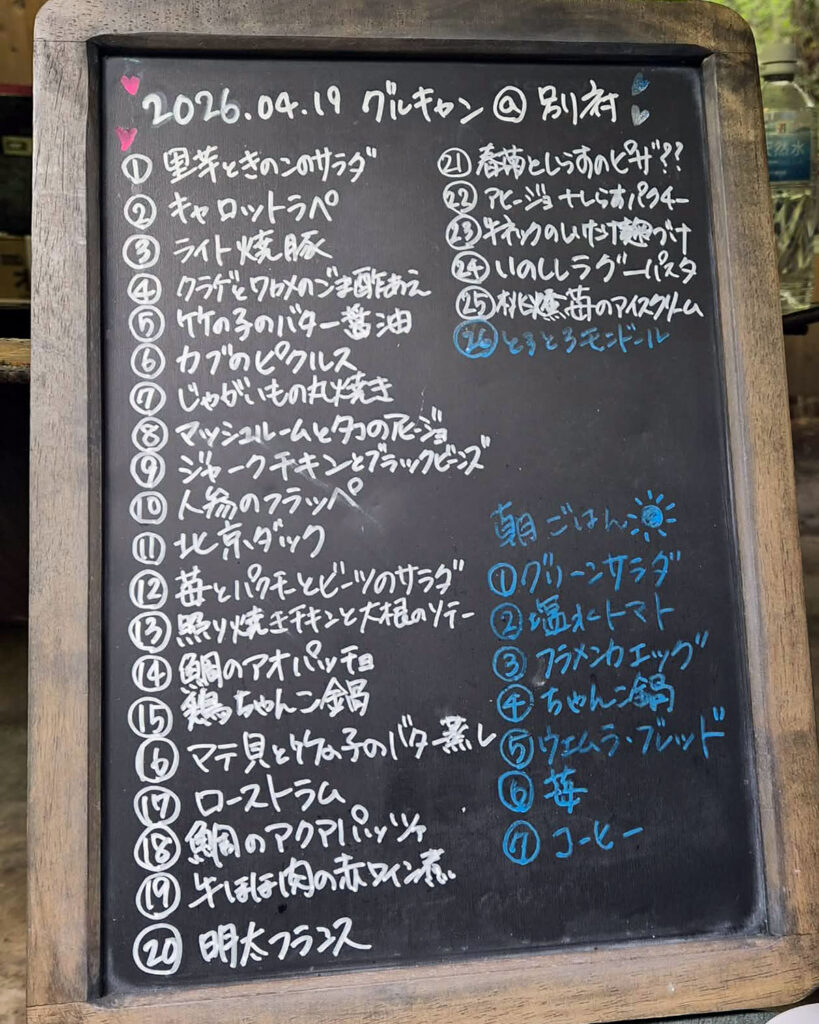 2026.04.19 グルキャン@別村
① 里芋ときのこのサラダ
② キャロットラペ
③ ライト焼豚
④ クラゲとワカメのごま酢あえ
⑤ 竹の子のバター醤油
⑥ カブのピクルス
⑦ じゃがいもの丸焼き
⑧ マッシュルームとタコのアヒージョ
⑨ ジャークチキンとブラックビーンズ
⑩ 人参のフラッペ
⑪ 北京ダック
⑫ 苺とパクチーとビーツのサラダ
⑬ 照り焼きチキンと大根のソテー
⑭ 鯛のアオパッチョ
⑮ 鶏ちゃんこ鍋
⑯ マテ貝と竹の子のバター蒸し
⑰ ローストラム
⑱ 鯛のアクアパッツァ
⑲ 牛ほほ肉の赤ワイン煮
⑳ 明太フランス
㉑ 春菊としらすのピザ??
㉒ アヒージョ+しらすパクチー
㉓ 牛ネックのしいたけ麹づけ
㉔ いのししラグーパスタ
㉕ 桃燻苺のアイスクリーム
㉖ とろとろモンドール
朝ごはん
① グリーンサラダ
② 塩水トマト
③ フラメンカエッグ
④ ちゃんこ鍋
⑤ ウエムラ・ブレッド
⑥ 苺
⑦ コーヒー
天然水